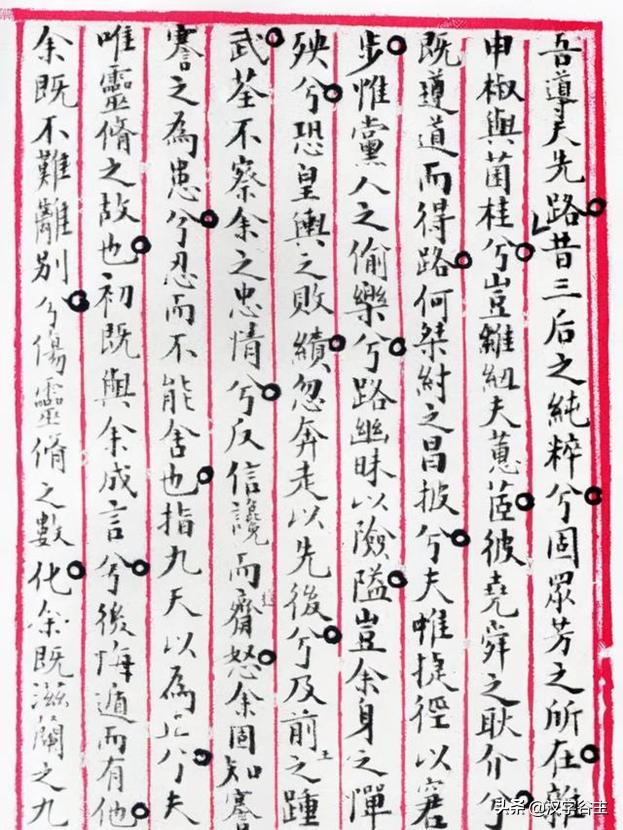 吾導夫先路昔三后之純粹兮固眾芳之所在雜
申椒與菌桂兮豈雖紉夫蕙茝彼堯舜之耿介兮
既遵道而得路何桀紂之昌披兮夫惟捷徑以窘
步惟黨人之偷樂兮路幽昧以險隘豈余身之憚
殃兮恐皇輿之敗績忽奔走以先後兮及前王之踵
武荃不察余之忠情兮反信讒而齋怒余固知謇
謇之為患兮忍而不能舍也指九天以為正兮夫
唯靈脩之故也初既與余成言兮後悔遁而有他
余既不難離別兮傷靈脩之數化余既滋蘭之九
头条 @汉字谷主